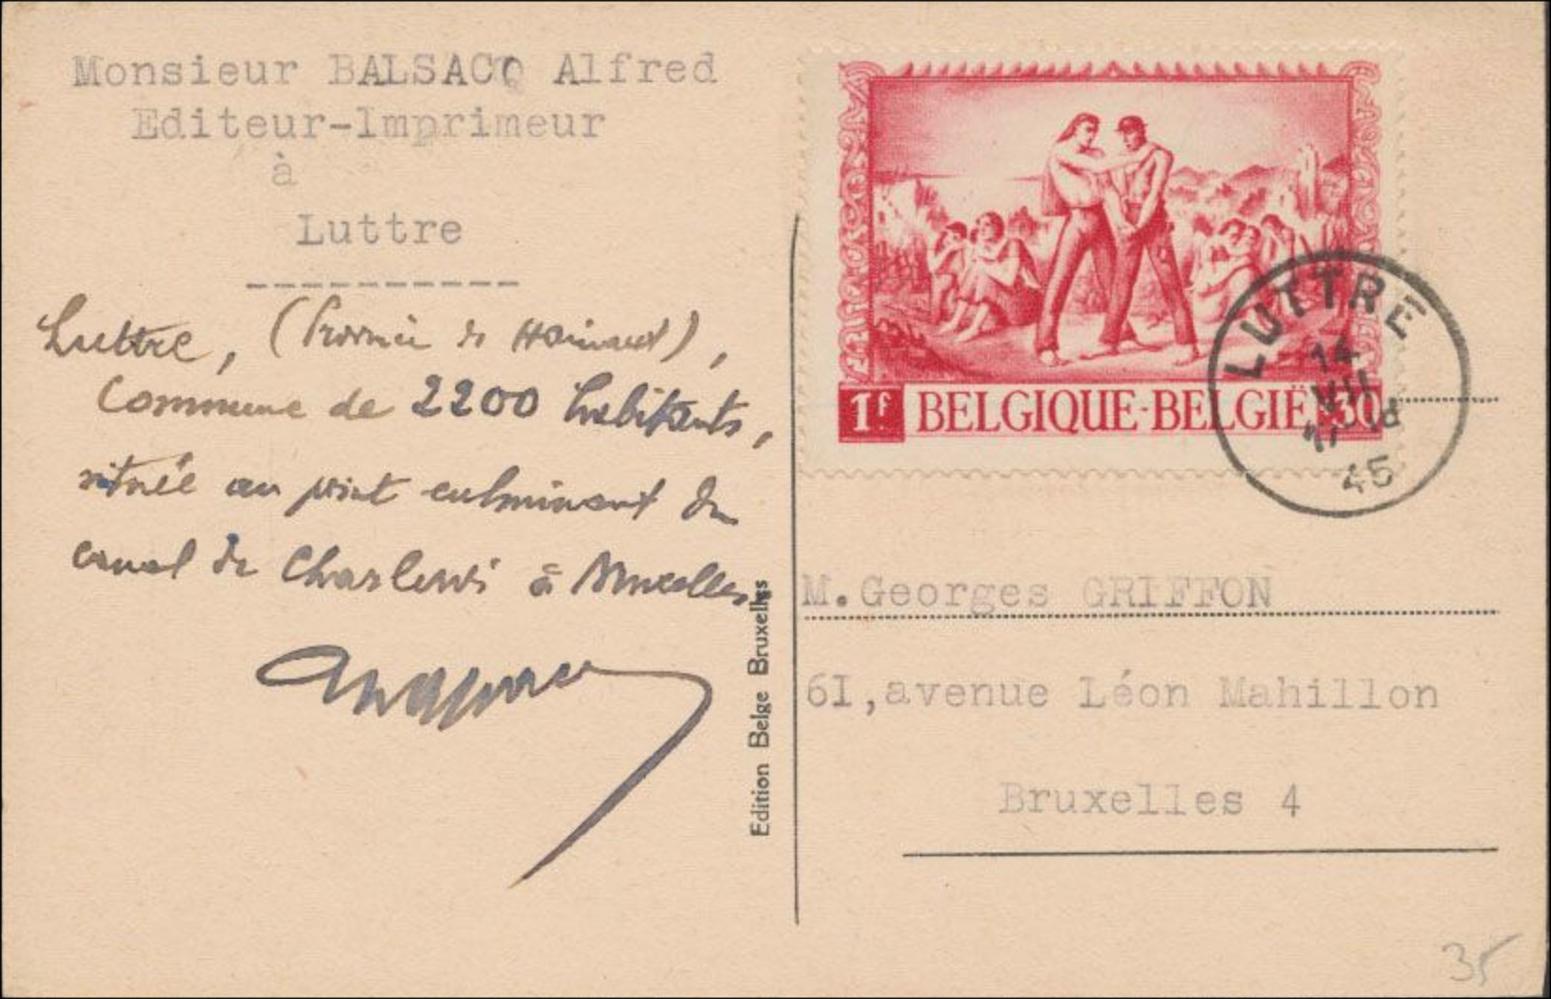 Monsieur BALSACQ Alfred
Editeur-Imprimeur
à
Luttre
-----------
Luttre, (Province de Hainaut),
Commune de 2200 habitants,
située au point culminant du
canal de Charleroi à Bruxelles.
Edition Belge Bruxelles
1f BELGIQUE-BELGIË 30
LUTTRE
14
VII
45
M.Georges GRIFFON
61,avenue Léon Mahillon
Bruxelles 4
35